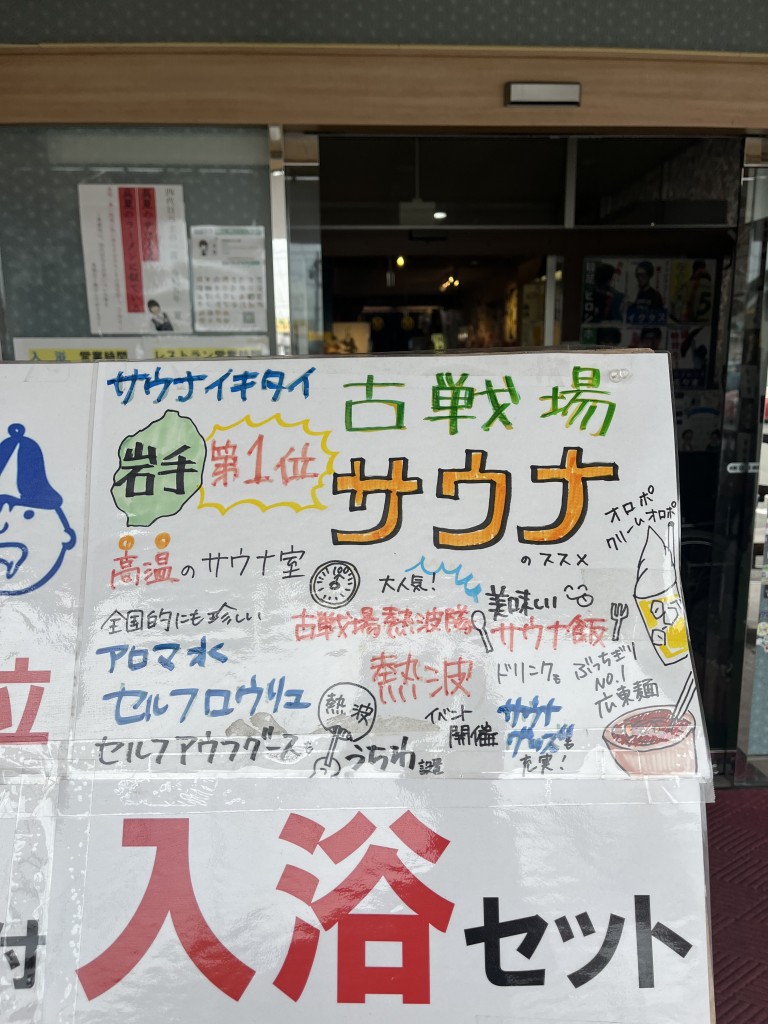 入浴 営業時間
レストラン営業時間
サウナイキタイ
岩手
第1位
古戦場
サウナ
のススメ
高温のサウナ室
100℃
大人気!
オロポ
クリームオロポ
全国的にも珍しい
アロマ水
セルフロウリュ
セルフアウフグースも
古戦場熱波隊
熱波
イベント
開催
熱波
うちわ
設置
美味しい
サウナ飯
ドリンクも
サウナ
グッズも
充実!
ぶっちぎり
No.1
広東麺
位
付
入浴セット